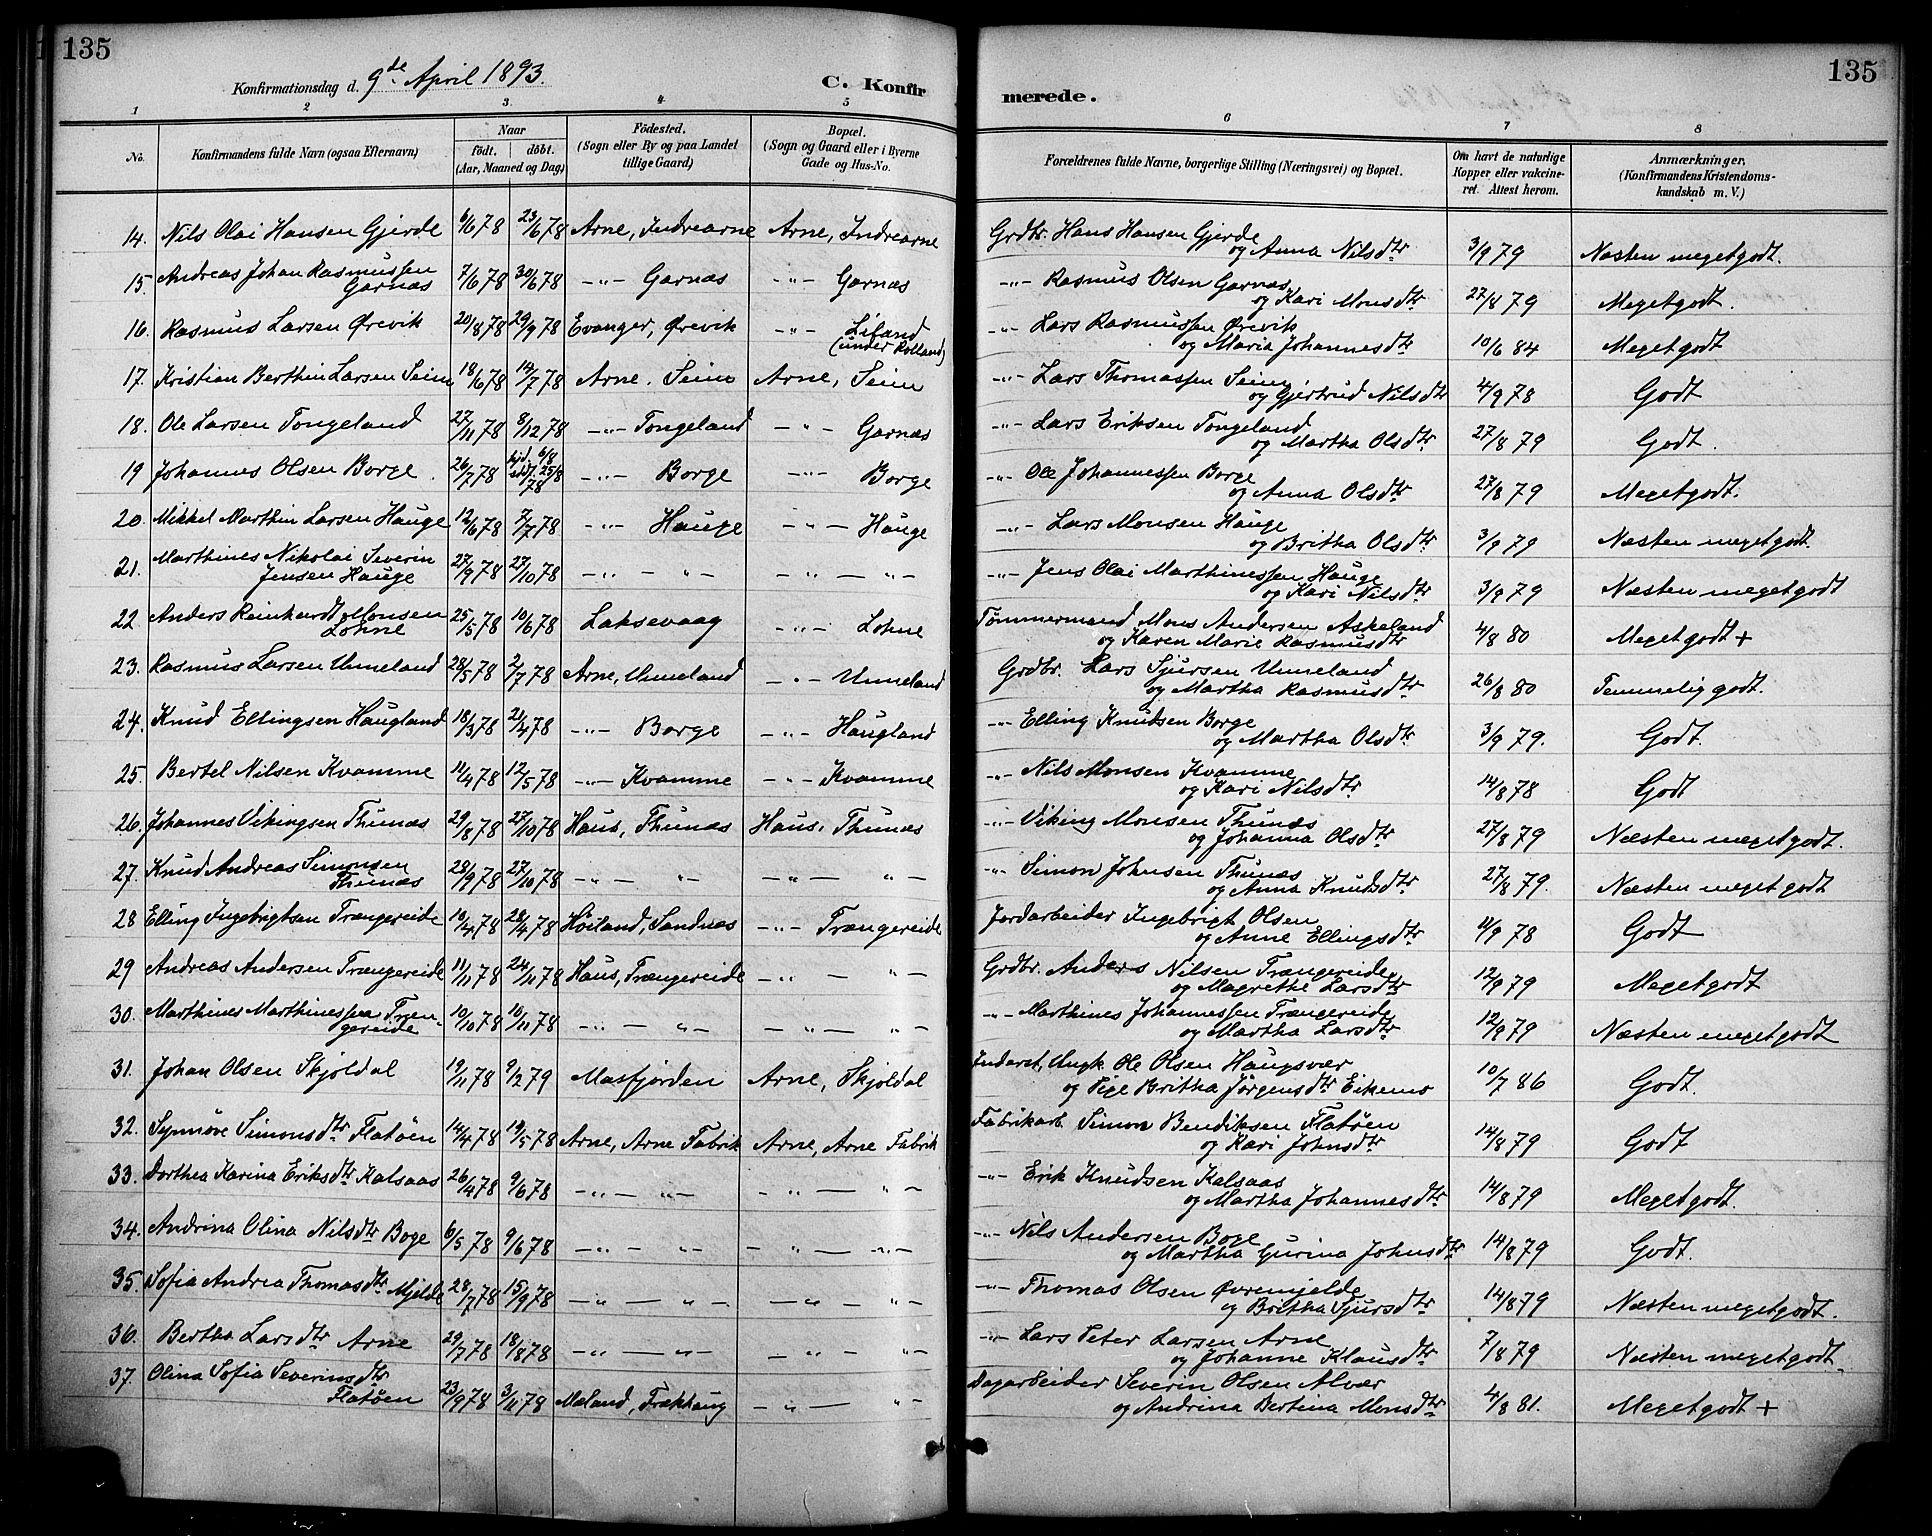 135
135
Konfirmationsdag d. 9de April 1893.
C. Konfir
merede.
1 2 3 4 5 6 7 8
No.
Konfirmandens fulde Navn (ogsaa Efternavn)
Naar
født. døbt.
(Aar, Maaned og Dag)
Födested.
(Sogn eller By og paa Landet
tillige Gaard)
Bopæl.
(Sogn og Gaard eller i Byerne
Gade og Hus-No.
Forældrenes fulde Navne, borgerlige Stilling (Næringsvei) og Bopæl.
Om havt de naturlige
Kopper eller vakcine-
ret. Attest herom.
Anmærkninger,
(Konfirmandens Kristendoms-
kundskab m. V.)
14. Nils Olai Hansen Gjerde 6/6 78 23/6 78 Arne, Indrearne Arne, Indrearne Grdbr. Hans Hansen Gjerde
og Anna Nilsdtr 3/9 79 Næsten megetgodt.
15. Andreas Johan Rasmussen
Garnæs 7/6 78 30/6 78 -"- Garnæs -"- Garnæs -"- Rasmus Olsen Garnæs
og Kari Monsdtr 27/8 79 Megetgodt.
16. Rasmus Larsen Ørevik 20/8 78 29/9 78 Evanger, Ørevik -"- Liland
(under Rolland) -"- Lars Rasmussen Ørevik
og Maria Johannesdtr 10/6 84 Megetgodt
17. Kristian Berthin Larsen Seim 18/6 78 14/7 78 Arne, Seim Arne, Seim -"- Lars Thomassen Seim
og Gjertrud Nilsdtr 4/9 78 Godt
18. Ole Larsen Tongeland 27/11 78 8/12 78 -"- Tongeland -"- Garnæs -"- Lars Eriksen Tongeland
og Martha Olsdtr 27/8 79 Godt.
19 Johannes Olsen Borge 26/7 78 hjd. 6/8
stdf. 25/8
78 -"- Borge -"- Borge -"- Ole Johannessen Borge
og Anna Olsdtr 27/8 79 Megetgodt.
20. Mikkel Marthin Larsen Hauge 12/6 78 7/7 78 -"- Hauge -"- Hauge -"- Lars Monsen Hauge
og Britha Olsdtr 3/9 79 Næsten megetgodt.
21. Marthines Nikolai Severin
Jensen Hauge 27/9 78 27/10 78 -"- -"- -"- -"- -"- Jens Olai Marthinessen Hauge
og Kari Nilsdtr 3/9 79 Næsten megetgodt
22 Anders Reinhardt Monsen
Lohne 25/5 78 10/6 78 Laksevaag -"- Lohne Tømmermand Mons Andersen Askeland
og Karen Marie Rasmusdtr 4/8 80 Megetgodt +
23. Rasmus Larsen Unneland 28/5 78 2/7 78 Arne, Unneland -"- Unneland Grdbr. Lars Sjursen Unneland
og Martha Rasmusdtr 26/8 80 Temmelig godt.
24. Knud Ellingsen Haugland 18/3 78 21/4 78 -"- Borge -"- Haugland -"- Elling Knudsen Borge
og Martha Olsdtr 3/9 79. Godt.
25. Bertel Nilsen Kvamme 11/4 78 12/5 78 -"- Kvamme -"- Kvamme -"- Nils Monsen Kvamme
og Kari Nilsdtr 14/8 78 Godt
26. Johannes Vikingsen Thunæs 29/8 78 27/10 78 Haus, Thunæs Haus, Thunæs -"- Viking Monsen Thunæs
og Johanna Olsdtr 27/8 79 Næsten megetgodt.
27. Knud Andreas Simonsen
Thunæs 23/9 78 27/10 78 -"- -"- -"- -"- -"- Simon Johnsen Thunæs
og Anna Knudsdtr 27/8 79. Næsten megetgodt
28 Elling Ingebrigtsen Trængereide 10/4 78 28/4 78 Høiland, Sandnæs -"- Trængereide Jordarbeider Ingebrigt Olsen
og Anne Ellingsdtr 4/9 78 Godt
29 Andreas Andersen Trængereide 11/11 78 24/11 78 Haus, Trængereide -"- -"- Grdbr. Anders Nilsen Trængereide
og Magrethe Larsdtr 12/9 79 Megetgodt
30. Marthines Marthinessen Træn-
gereide 10/10 78 10/11 78 -"- -"- -"- -"- -"- Marthines Johannessen Trængereide
og Martha Larsdtr 12/9 79 Næsten megetgodt
31. Johan Olsen Skjoldal 19/11 78 9/2 79 Masfjorden Arne, Skjoldal Inderst, Ungk. Ole Olsen Haugsvær
og Pige Britha Jørgensdtr Eikemo 10/7 86 Godt.
32. Synnøve Simonsdtr Flatøen 14/4 78 19/5 78 Arne, Arne Fabrik Arne, Arne Fabrik Fabrikarb. Simon Bendiksen Flatøen
og Kari Johnsdtr 14/8 79 Godt
33. Dorthea Karina Eriksdtr Kalsaas 26/4 78 9/6 78 -"- -"- -"- -"- -"- Erik Knudsen Kalsaas
og Martha Johannesdtr 14/8 79 Megetgodt.
34. Andrina Olina Nilsdtr Boge 6/5 78 9/6 78 -"- -"- -"- -"- -"- Nils Andersen Boge
og Martha Gurina Johnsdtr 14/8 79 Godt.
35. Sofia Andrea Thomasdtr Mjelde 28/7 78 15/9 78 -"- -"- -"- -"- -"- Thomas Olsen Øvremjelde
og Britha Sjursdtr 14/8 79 Næsten megetgodt.
36. Bertha Larsdtr Arne 29/7 78 18/8 78 -"- -"- -"- -"- -"- Lars Peter Larsen Arne
og Johanne Klausdtr 7/8 79 Næsten megetgodt.
37. Olina Sofia Severinsdtr
Flatøen 23/9 78 3/11 78 Mæland, Frækhaug -"- -"- Dagarbeider Severin Olsen Alvær
og Andrina Bertina Monsdtr 4/8 81. Megetgodt +